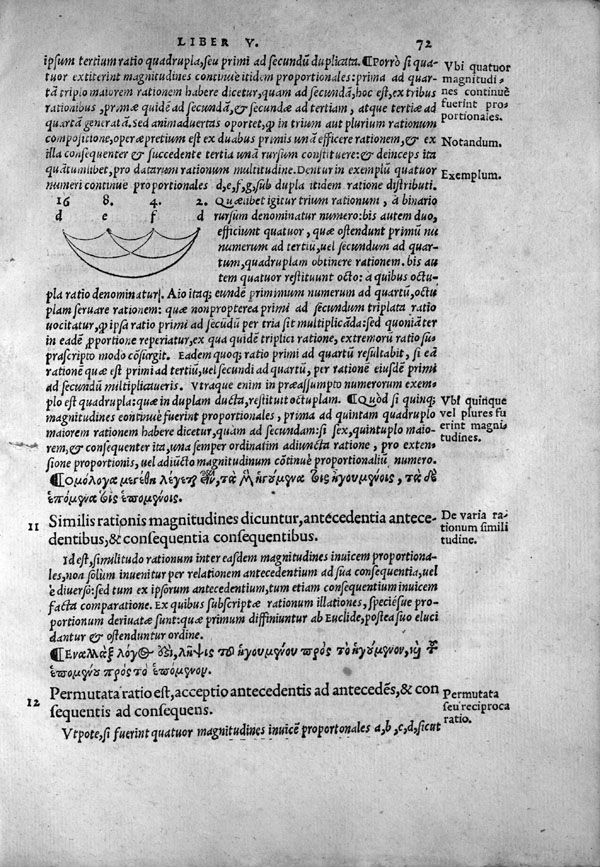 LIBER V. 72
ipsum tertium ratio quadrupla, seu primi ad secundū duplicata. ¶Porrò si qua-
tuor extiterint magnitudines continuè itidem proportionales: prima ad quar-
tā triplo maiorem rationem habere dicetur, quam ad secundā, hoc est, ex tribus
rationibus, primæ quidē ad secundā, & secundæ ad tertiam, atque tertiæ ad
quartā generatā. Sed animaduertas oportet, ꝙ in trium aut plurium rationum
compositione, operæpretium est ex duabus primis unā efficere rationem, & ex
illa consequenter & succedente tertia unā rursum constituere: & deinceps ita
quātumlibet, pro datarum rationum multitudine. Dentur in exemplū quatuor
numeri continuè proportionales d, e, f, g, sub dupla itidem ratione distributi.
Vbi quatuor
magnitudi-
nes continuè
fuerint pro-
portionales.
Notandum.
Exemplum.
16 8. 4. 2.
d e f d
Quælibet igitur trium rationum, à binario
rursum denominatur numero: bis autem duo,
efficiunt quatuor, quæ ostendunt primū nu
numerum ad tertiū, uel secundum ad quar-
tum, quadruplam obtinere rationem. bis au
tem quatuor restituunt octo: à quibus octu-
pla ratio denominatur. Aio itaq; eundē primimum numerum ad quartū, octu
plam seruare rationem: quæ nonpropterea primi ad secundum triplata ratio
uocitatur, ꝙ ipsa ratio primi ad secūdū per tria sit multiplicāda: sed quoniā ter
in eadē proportione reperiatur, ex qua quidē triplici ratione, extremorū ratio su-
præscripto modo cōsurgit. Eadem quoq; ratio primi ad quartū resultabit, si eā
rationē quæ est primi ad tertiū, uel secundi ad quartū, per rationē eiusdē primi
ad secundū multiplicaueris. Vtraque enim in præassumpto numerorum exem-
plo est quadrupla: quæ in duplam ducta, restituit octuplam. ¶Quòd si quinq;
magnitudines continuè fuerint proportionales, prima ad quintam quadruplo
maiorem rationem habere dicetur, quam ad secundam: si sex, quintuplo maio-
rem, & consequenter ita, una semper ordinatim adiuncta ratione, pro exten-
sione proportionis, uel adiūcto magnitudinum cōtinuè proportionaliū numero.
Vbi quinque
vel plures fu
erint magni-
tudines.
¶Ὁμόλογα μεγέθη λέγεται εἶναι, τὰ μὲν ἡγούμενα τοῖς ἡγουμένοις, τὰ δὲ
ἑπόμενα τοῖς ἑπομένοις.
11 Similis rationis magnitudines dicuntur, antecedentia antece-
dentibus, & consequentia consequentibus.
De varia ra-
tionum simili
tudine.
Id est, similitudo rationum inter easdem magnitudines inuicem proportiona-
les, non solùm inuenitur per relationem antecedentium ad sua consequentia, uel
è diuerso: sed tum ex ipsorum antecedentium, tum etiam consequentium inuicem
facta comparatione. Ex quibus subscriptæ rationum illationes, speciésue pro-
portionum deriuatæ sunt: quæ primum diffiniuntur ab Euclide, postea suo eluci
dantur & ostenduntur ordine.
¶Ἐναλλὰξ λόγος ὅζι, λῆψις τοῦ ἡγουμένου πρὸς τὸ ἡγούμενον, καὶ τοῦ
ἑπομένου πρὸς τὸ ἑπόμενον.
12 Permutata ratio est, acceptio antecedentis ad antecedēs, & con
sequentis ad consequens.
Permutata
seu reciproca
ratio.
Vtpote, si fuerint quatuor magnitudines inuicē proportonales a, b, c, d, sicut